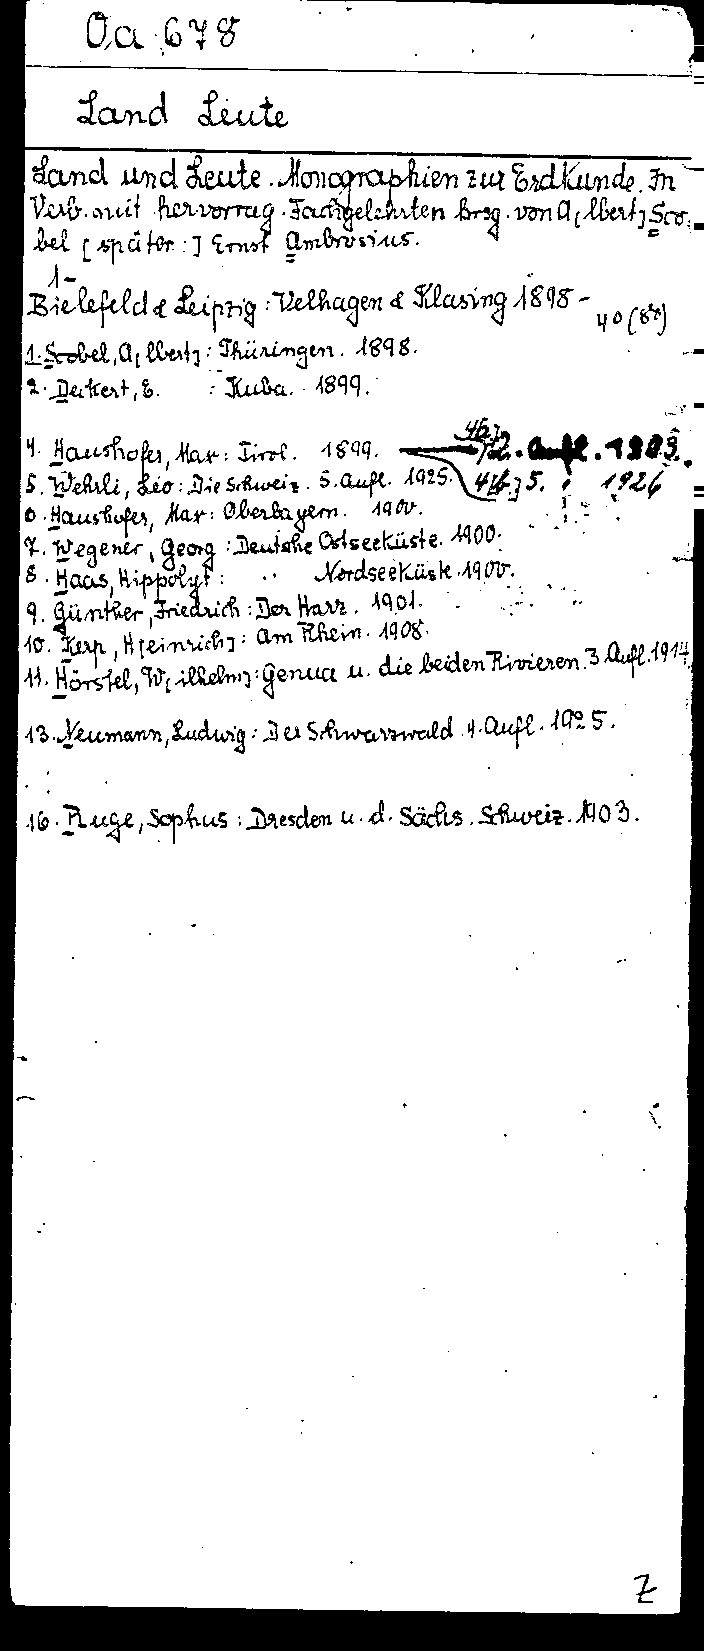 Oa 678
Land Leute
Land und Leute. Monographien zur Erdkunde. In
Verb. mit hervorrag. Fachgelehrten hrsg. von A[lbert] Sco-
bel [später:] Ernst Ambrosius.
1-
Bielefeld & Leipzig: Velhagen & Klasing 1898-
4° (8°)
1. Scobel, A[lbert]: Thüringen. 1898.
2. Deckert, E. : Kuba. 1899.
4. Haushofer, Max: Tirol. 1899. 4b] 2. Aufl. 1903.
5. Wehrli, Leo: Die Schweiz. 5. Aufl. 1925. 5. " 1926
6. Haushofer, Max: Oberbayern. 1900.
7. Wegener, Georg: Deutsche Ostseeküste. 1900.
8. Haas, Hippolyt: " Nordseeküste. 1900.
9. Günther, Friedrich: Der Harz. 1901.
10. Kerp, H[einrich]: Am Rhein. 1908.
11. Hörstel, W[ilhelm]: Genua u. die beiden Rivieren. 3 Aufl. 1914.
13. Neumann, Ludwig: Der Schwarzwald 4. Aufl. 1925.
16. Ruge, Sophus: Dresden u. d. Sächs. Schweiz. 1903.
Z